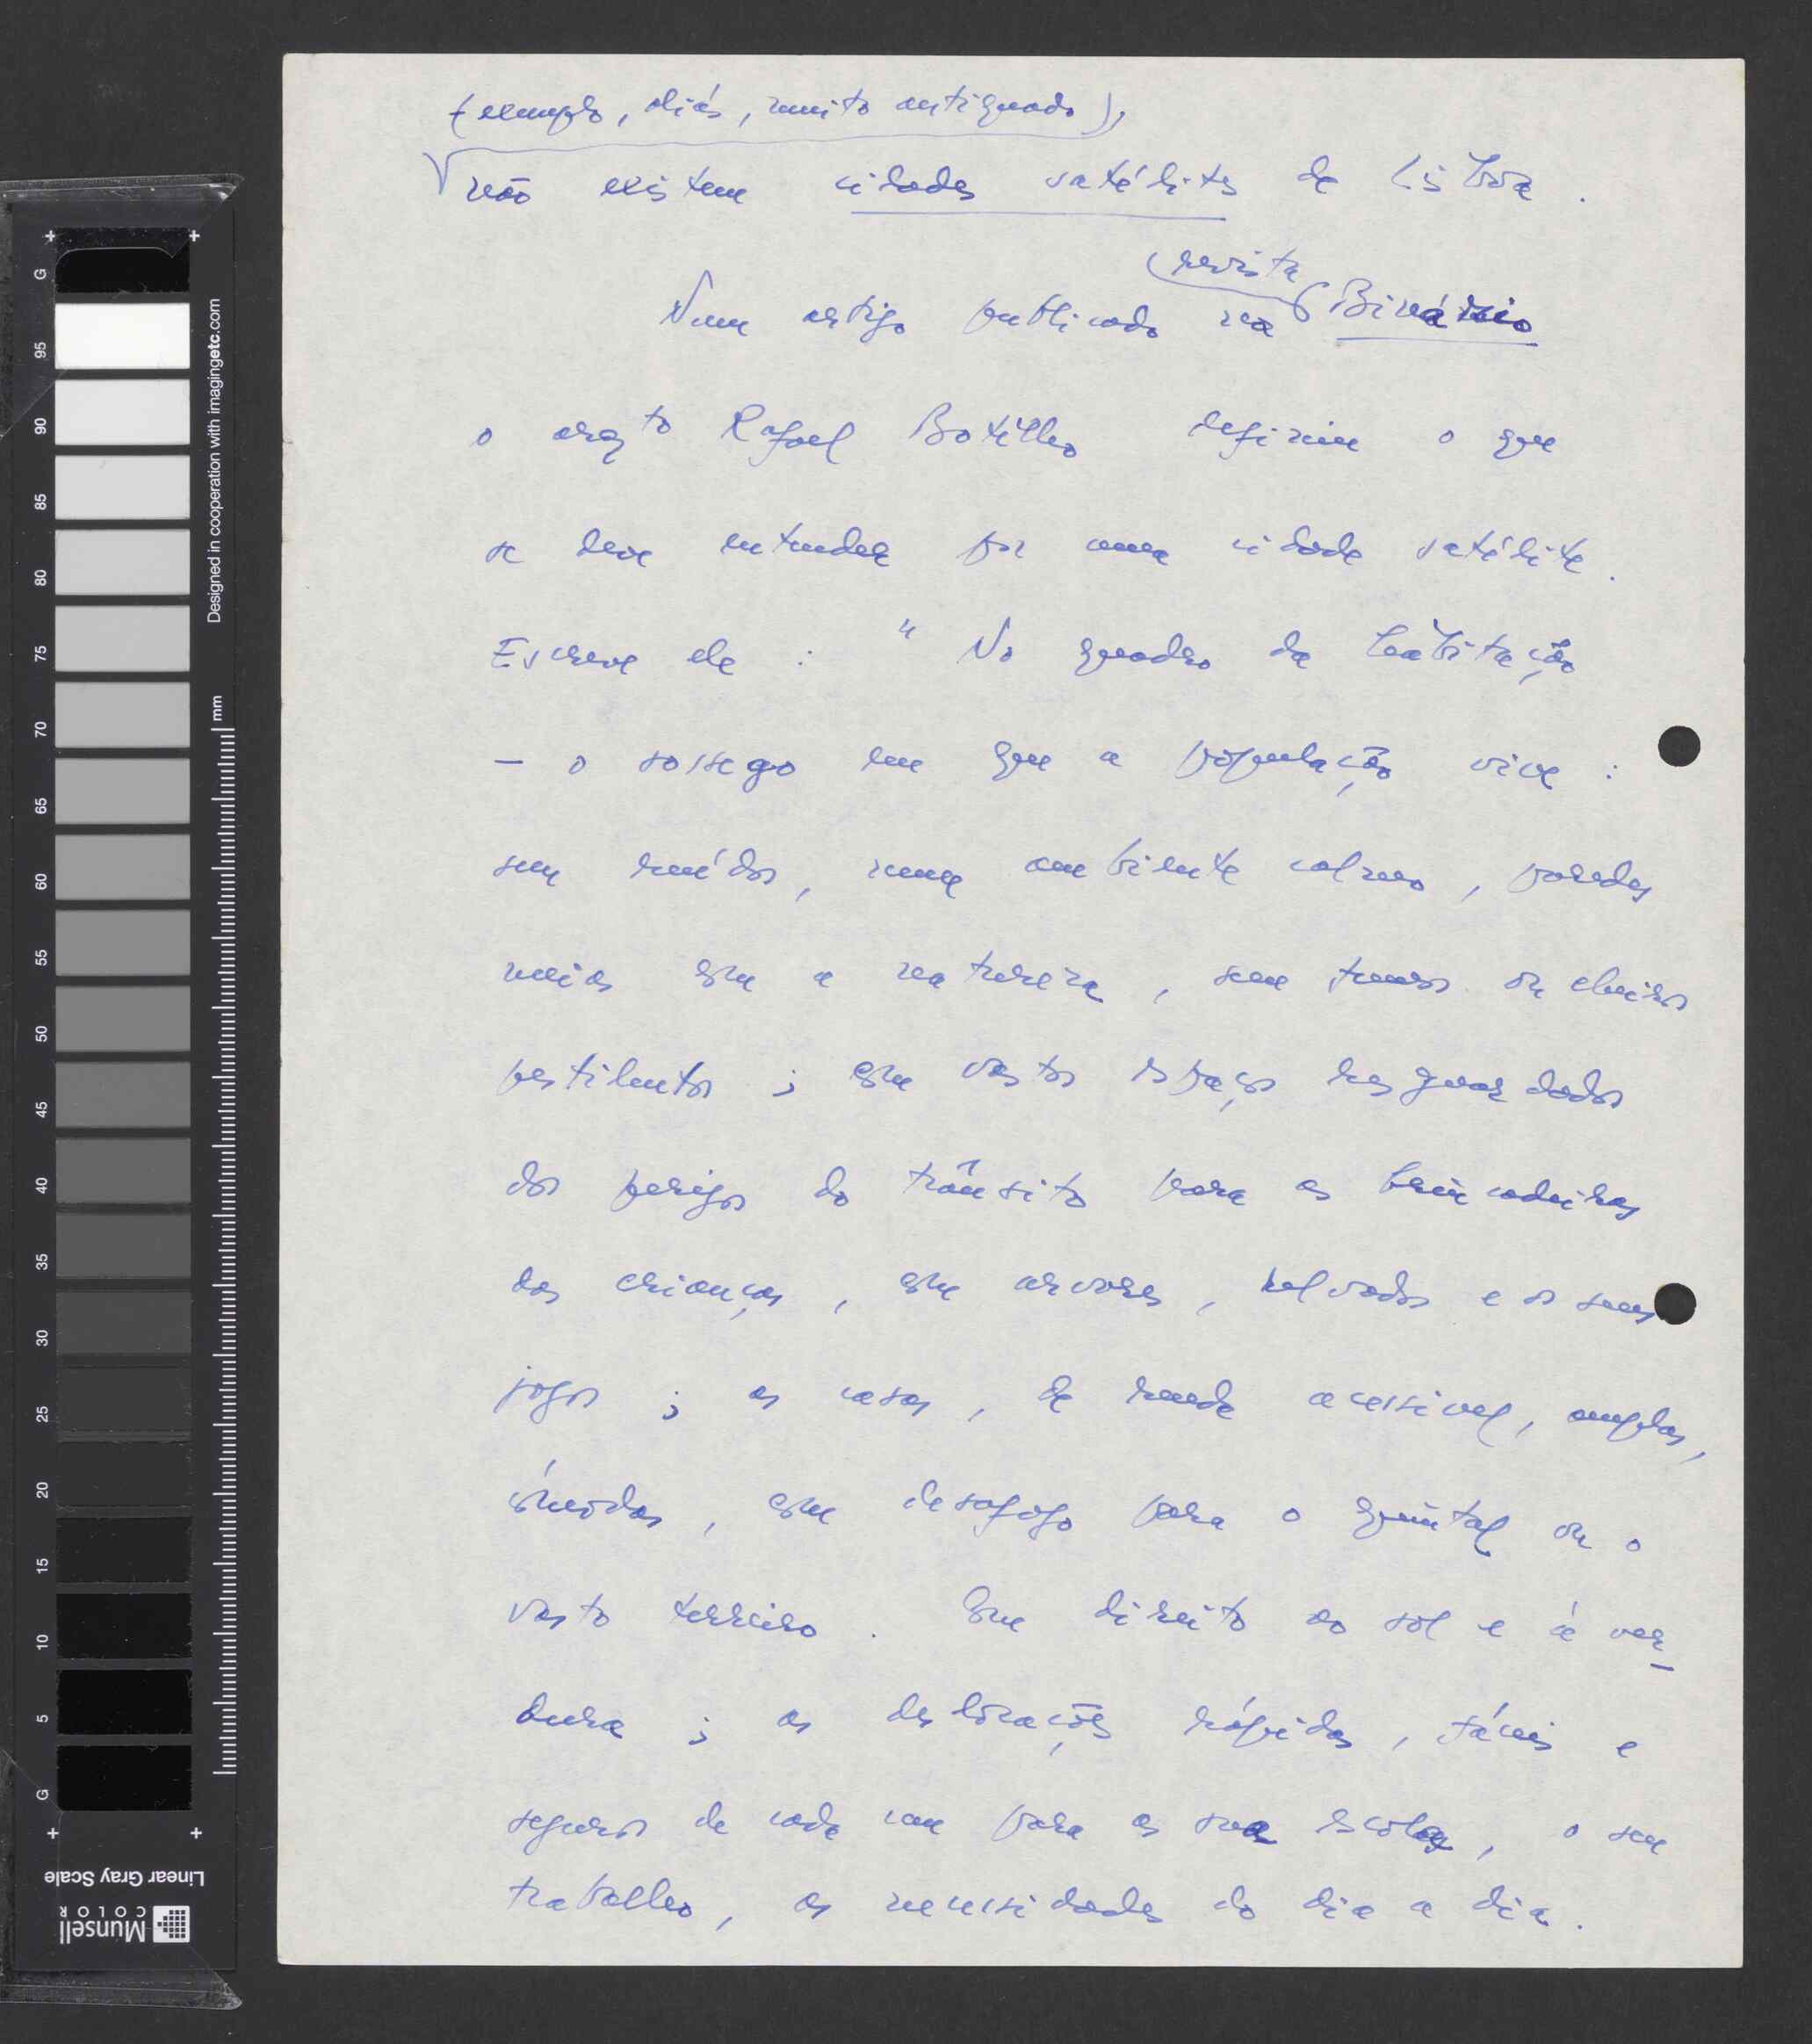 (exemplo, aliás, muito antiquado),
não existem cidades satélites de Lisboa.
revista
Num artigo publicado na Binário
o arqto Rafael Botelho definiu o que
se deve entender por uma cidade satélite.
Escreve ele: "No quadro da habitação
– o sossego em que a população vive:
sem ruídos, num ambiente calmo, paredes
meias com a natureza, sem fumos ou cheiros
pestilentos; com vastos espaços resguardados
dos perigos do trânsito para as brincadeiras
das crianças, com árvores, relvados e os seus
jogos; as casas, de renda acessível, amplas,
cómodas, com desafogo para o quintal ou o
vasto terreiro. Com direito ao sol e à ver-
dura; as deslocações rápidas, fáceis e
seguras de cada um para a sua escola, o seu
trabalho, as necessidades do dia a dia.
G 95 90 85 80 75 70 65 60 55 50 45 40 35 30 25 20 15 10 5 G
mm
Designed in cooperation with imagingetc.com
Linear Gray Scale
Munsell
COLOR